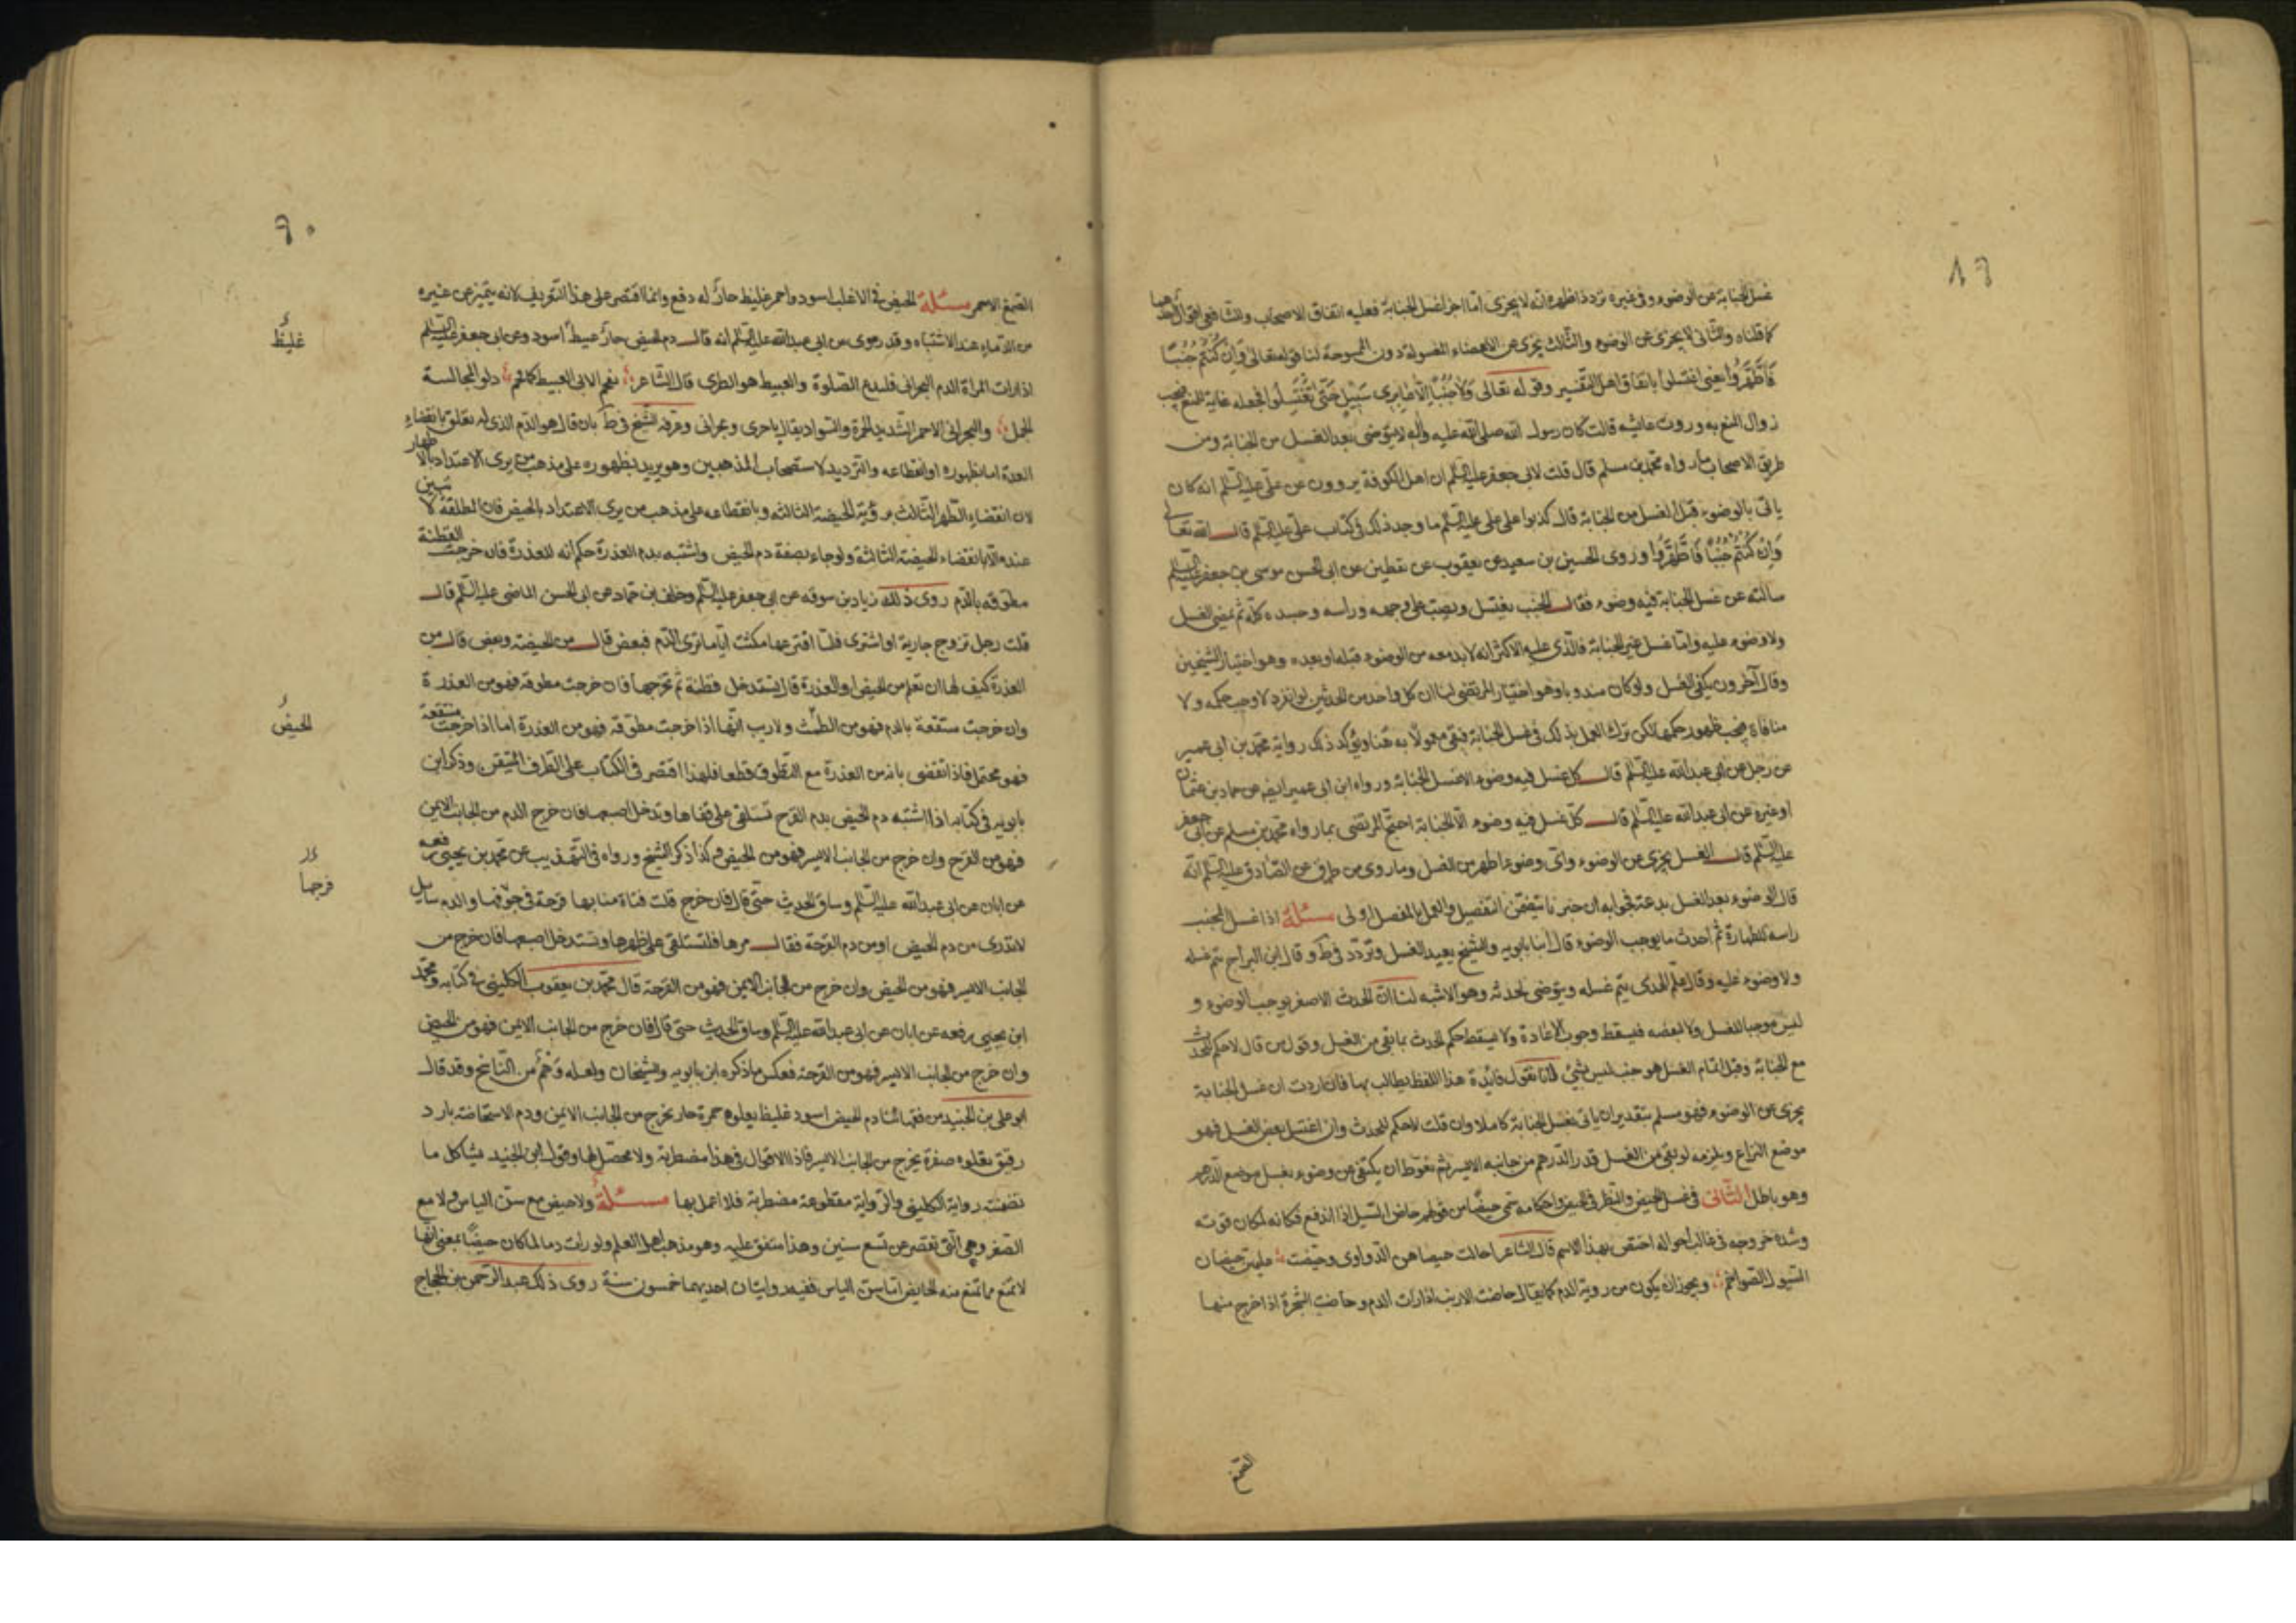 غسل الجنابة من الوضوء وفي غيره تردد اظهره انه لا يجزى اما اجزا غسل الجنابة فعليه اتفاق الاصحاب وللشافعي اقوال احدها
كما قلناه والثاني لا يجزى عن الوضوء والثالث يجزى عن الاعضاء المغسولة دون الممسوحة لنا قوله تعالى وَاِنْ كُنْتُمْ جُنُبًا
فَاطَّهَّرُوا يعني اغتسلوا باتفاق اهل التفسير وقوله تعالى وَلاَ جُنُبًا اِلاَّ عَابِرِى سَبِيلٍ حَتَّى تَغْتَسِلُوا فجعله غاية للمنع فيجب
زوال المنع به وروت عائشه قالت كان رسول الله صلى الله عليه وآله لا يتوضى بعد الغسل من الجنابة ومن
طريق الاصحاب ما رواه محمد بن مسلم قال قلت لابي جعفر عليه السلم ان اهل الكوفة يروون عن علي عليه السلم انه كان
ياتي بالوضوء قبل الغسل من الجنابة قال كذبوا على علي عليه السلم ما وجد ذلك في كتاب علي عليه السلم قال الله تعالى
وَاِنْ كُنْتُمْ جُنُبًا فَاطَّهَّرُوا وروى الحسين بن سعيد عن يعقوب عن يقطين عن ابي الحسن موسى بن جعفر عليه السلم
سالته عن غسل الجنابة فيه وضوء فقال الجنب يغتسل ويصب على وجهه وراسه وجسده كله ثم يمضي الغسل
ولا وضوء عليه واما غسل غير الجنابة فالذي عليه الاكثر انه لا بد معه من الوضوء قبله او بعده وهو اختيار الشيخين
وقال آخرون يكفي الغسل ولو كان مندوبا وهو اختيار المرتضى لنا ان كل واحد من الحدثين لو انفرد لاوجب حكمه ولا
منافاة فيجب ظهور حكمهما لكن ترك العمل بذلك في غسل الجنابة فبقي معمولا به هنا ويؤكد ذلك رواية محمد بن ابي عمير
عن رجل عن ابي عبد الله عليه السلم قال كل غسل فيه وضوء الا غسل الجنابة ورواه ابن ابي عمير ايضا عن حماد بن عثمان
او غيره عن ابي عبد الله عليه السلم قال كل غسل فيه وضوء الا الجنابة احتج المرتضى بما رواه محمد بن مسلم عن ابي جعفر
عليه السلم قال الغسل يجزى عن الوضوء واي وضوء اطهر من الغسل وما روى من طرق عن الصادق عليه السلم انه
قال الوضوء بعد الغسل بدعة فجوابه ان خبرنا يتضمن التفصيل والعمل بالمفصل اولى مسئلة اذا غسل المجنب
راسه للطهارة ثم احدث ما يوجب الوضوء قال ابنا بابويه والشيخ يعيد الغسل وتردد في ط وقال ابن البراج يتم غسله
ولا وضوء عليه وقال علم الهدى يتم غسله ويتوضى لحدثه وهو الاشبه لنا ان الحدث الاصغر يوجب الوضوء و
ليس موجبا للغسل ولا لبعضه فيسقط وجوب الاعادة ولا يسقط حكم الحدث بما بقي من الغسل وقول من قال لا حكم للحدث
مع الجنابة وقبل اتمام الغسل هو جنب ليس بشيء لانا نقول فايدة هذا اللفظ يطالب بها فان اردت ان غسل الجنابة
يجزى عن الوضوء فهو مسلم بتقدير ان ياتي بغسل الجنابة كاملا وان قلت لا حكم للحدث وان اغتسل بعض الغسل فهو
موضع النزاع ويلزمه لو بقي من الغسل قدر الدرهم من جانبه الايسر ثم تغوط ان يكتفي عن وضوءه بغسل موضع الدرهم
وهو باطل الثاني في غسل الحيض والنظر في الحيض واحكامه سمي حيضا من قولهم حاض السيل اذا اندفع فكانه لمكان قوته
وشدة خروجه في غالب احواله اختص بهذا الاسم قال الشاعر اجالت حصاهن الذوارى وحيضت عليهن حيضات
السيول الطواحم ويجوز ان يكون من روية الدم كما يقال حاضت الارنب اذا رات الدم وحاضت الشجرة اذا خرج منها
الصمغ
٦٠
الصمغ الاحمر مسئلة الحيض في الاغلب اسود واحمر غليظ حار له دفع وانما اقتصر على هذا التعريف لانه يتميز عن غيره
من الدماء عند الاشتباه وقد روى عن ابي عبد الله عليه السلم انه قال دم الحيض حار عبيط اسود وعن ابي جعفر عليه السلم
اذا رات المراة الدم البحراني فلتدع الصلوة والعبيط هو الطرى قال الشاعر
الجمل والبحراني الاحمر الشديد الحمرة والسواد يقال باحرى وبحراني وعرفه الشيخ في ط بان قال هو الدم الذي له تعلق بانقضاء
العدة اما بظهوره او انقطاعه والترديد لاستصحاب المذهبين وهو يريد بظهوره على مذهب من يرى الاعتداد بالاطهار
لان انقضاء الطهر الثالث برؤية الحيضة الثالثه وبانقطاعه على مذهب من يرى الاعتداد بالحيض فان المطلقة لا تبين
عنده الا بانقضاء الحيضة الثالثة ولو جاء بصفة دم الحيض واشتبه بدم العذرة حكم انه للعذرة فان خرجت القطنة
مطوقه بالدم روى ذلك زياد بن سوقه عن ابي جعفر عليه السلم وخلف بن حماد عن ابي الحسن الماضي عليه السلم قال
قلت رجل تزوج جارية او اشترى فلما افترعها مكثت اياما ترى الدم فبعض قال من الحيضة وبعض قال من
العذرة كيف لها ان تعلم من الحيض او العذرة قال تستدخل قطنة ثم تخرجها فان خرجت مطوقة فهو من العذرة
وان خرجت منتقعة بالدم فهو من الطمث ولا ريب انها اذا خرجت مطوقه فهو من العذرة اما اذا خرجت منتقعة
فهو محتمل فاذا تقضى بانه من العذرة مع التطوق قطعا فلهذا اقتصر في الكتاب على الطرف المتيقن وذكر ابن
بابويه في كتابه اذا اشتبه دم الحيض بدم القرح تستلقي على قفاها وتدخل اصبعها فان خرج الدم من الجانب الايمن
فهو من القرح وان خرج من الجانب الايسر فهو من الحيض وكذا ذكر الشيخ ورواه في التهذيب عن محمد بن يحيى رفعه
عن ابان عن ابي عبد الله عليه السلم وساق الحديث حتى قال فان خرج قلت فتاة منا بها قرحة في جوفها والدم سايل
لا تدرى من دم الحيض او من دم القرحة فقال مرها فلتستلقي على ظهرها وتستدخل اصبعها فان خرج من
الجانب الايسر فهو من الحيض وان خرج من الجانب الايمن فهو من القرحة قال محمد بن يعقوب الكليني في كتابه ومحمد
ابن يحيى رفعه عن ابان عن ابي عبد الله عليه السلم وساق الحديث حتى قال فان خرج من الجانب الايمن فهو من الحيض
وان خرج من الجانب الايسر فهو من القرحة فعكس ما ذكره ابن بابويه والشيخان ولعله وَهْمٌ من الناسخ وقد قال
ابو علي بن الجنيد من فقهائنا دم الحيض اسود غليظ يعلوه حمرة حار يخرج من الجانب الايمن ودم الاستحاضة بارد
رقيق يعلوه صفرة يخرج من الجانب الايسر فاذا الاقوال في هذا مضطربة ولا محصل لها وقول ابن الجنيد يشاكل ما
تضمنته رواية الكليني والرواية مقطوعة مضطربة فلا اعمل بها مسئلة ولا حيض مع سن الياس ولا مع
الصغر وهي التي تقصر عن تسع سنين وهذا متفق عليه وهو مذهب اهل العلم ولو رات دما لما كان حيضا بمعنى انها
لا تمنع مما تمنع منه الحايض اما سن الياس ففيه روايتان احديهما خمسون سنة روى ذلك عبد الرحمن بن الحجاج
غليظ
الحيض
فرجها